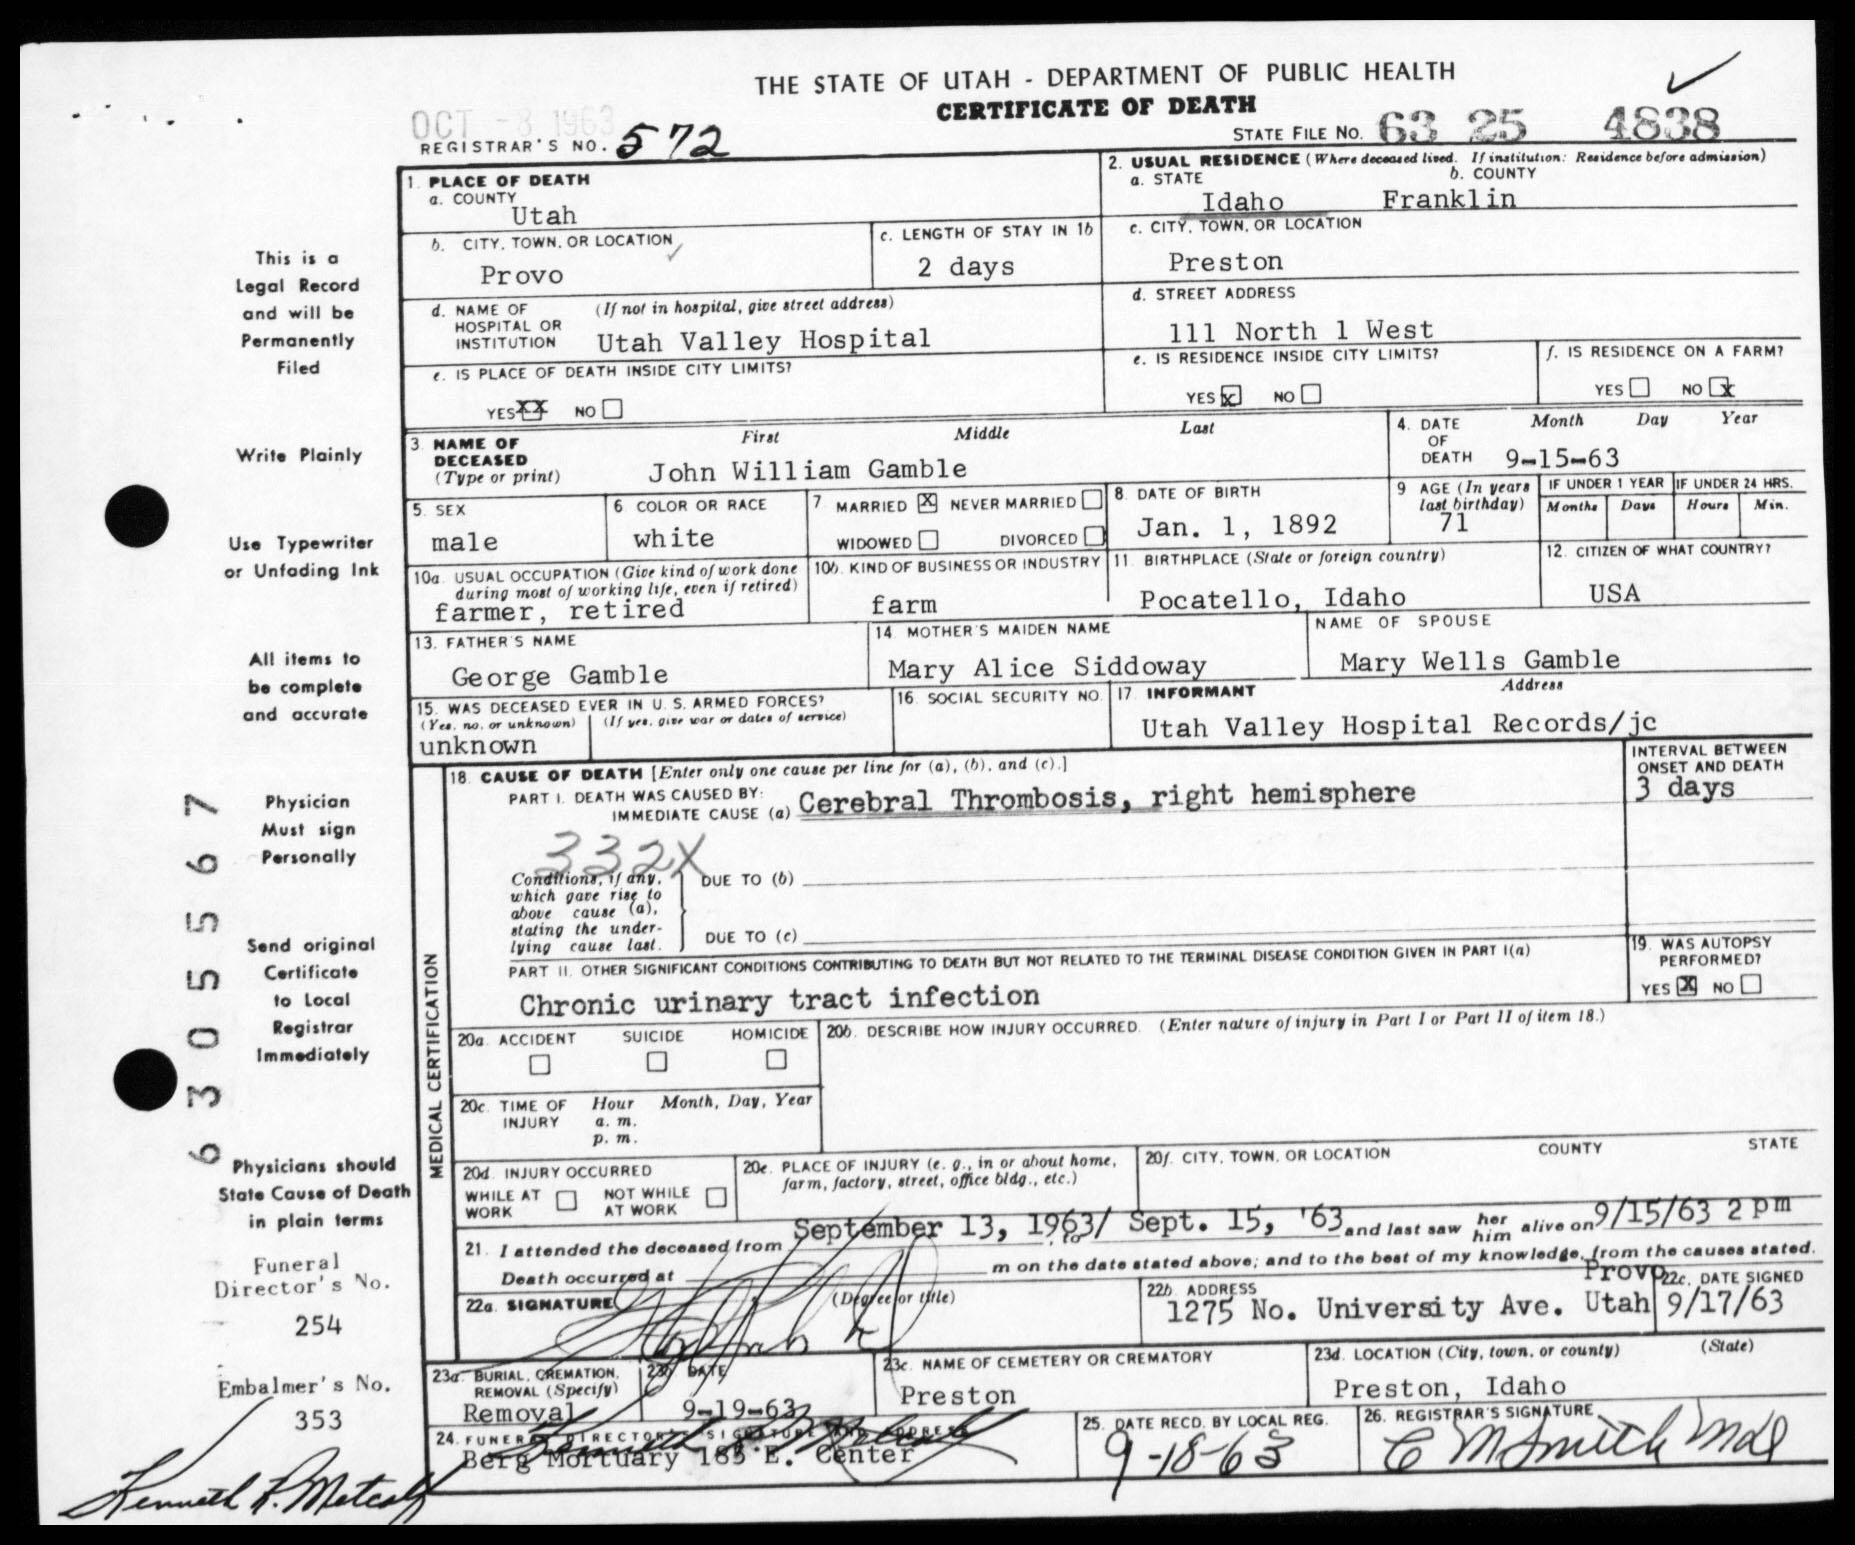 THE STATE OF UTAH - DEPARTMENT OF PUBLIC HEALTH
CERTIFICATE OF DEATH
OCT -8 1963
REGISTRAR'S NO. 572
STATE FILE NO. 63 25 4838
1. PLACE OF DEATH
a. COUNTY
Utah
2. USUAL RESIDENCE (Where deceased lived. If institution: Residence before admission)
a. STATE b. COUNTY
Idaho Franklin
b. CITY, TOWN, OR LOCATION
Provo
c. LENGTH OF STAY IN 1b
2 days
c. CITY, TOWN, OR LOCATION
Preston
d. NAME OF HOSPITAL OR INSTITUTION (If not in hospital, give street address)
Utah Valley Hospital
d. STREET ADDRESS
111 North 1 West
e. IS PLACE OF DEATH INSIDE CITY LIMITS?
YES XX NO
e. IS RESIDENCE INSIDE CITY LIMITS?
YES X NO
f. IS RESIDENCE ON A FARM?
YES NO X
3. NAME OF DECEASED (Type or print)
First Middle Last
John William Gamble
4. DATE OF DEATH Month Day Year
9-15-63
5. SEX
male
6. COLOR OR RACE
white
7. MARRIED X NEVER MARRIED
WIDOWED DIVORCED
8. DATE OF BIRTH
Jan. 1, 1892
9. AGE (In years last birthday)
71
IF UNDER 1 YEAR IF UNDER 24 HRS.
Months Days Hours Min.
10a. USUAL OCCUPATION (Give kind of work done during most of working life, even if retired)
farmer, retired
10b. KIND OF BUSINESS OR INDUSTRY
farm
11. BIRTHPLACE (State or foreign country)
Pocatello, Idaho
12. CITIZEN OF WHAT COUNTRY?
USA
13. FATHER'S NAME
George Gamble
14. MOTHER'S MAIDEN NAME
Mary Alice Siddoway
NAME OF SPOUSE
Mary Wells Gamble
15. WAS DECEASED EVER IN U. S. ARMED FORCES?
(Yes, no, or unknown) (If yes, give war or dates of service)
unknown
16. SOCIAL SECURITY NO.
17. INFORMANT Address
Utah Valley Hospital Records/jc
MEDICAL CERTIFICATION
18. CAUSE OF DEATH [Enter only one cause per line for (a), (b), and (c).]
INTERVAL BETWEEN ONSET AND DEATH
PART I. DEATH WAS CAUSED BY:
IMMEDIATE CAUSE (a) Cerebral Thrombosis, right hemisphere
3 days
332X
Conditions, if any, which gave rise to above cause (a), stating the underlying cause last.
DUE TO (b)
DUE TO (c)
PART II. OTHER SIGNIFICANT CONDITIONS CONTRIBUTING TO DEATH BUT NOT RELATED TO THE TERMINAL DISEASE CONDITION GIVEN IN PART I(a)
Chronic urinary tract infection
19. WAS AUTOPSY PERFORMED?
YES X NO
20a. ACCIDENT SUICIDE HOMICIDE
20b. DESCRIBE HOW INJURY OCCURRED. (Enter nature of injury in Part I or Part II of item 18.)
20c. TIME OF INJURY Hour Month, Day, Year
a. m.
p. m.
20d. INJURY OCCURRED
WHILE AT WORK NOT WHILE AT WORK
20e. PLACE OF INJURY (e. g., in or about home, farm, factory, street, office bldg., etc.)
20f. CITY, TOWN, OR LOCATION COUNTY STATE
21. I attended the deceased from September 13, 1963/ , to Sept. 15, '63 and last saw her him alive on 9/15/63 2 pm
Death occurred at m on the date stated above; and to the best of my knowledge, from the causes stated.
22a. SIGNATURE (Degree or title)
22b. ADDRESS
1275 No. University Ave. Provo Utah
22c. DATE SIGNED
9/17/63
23a. BURIAL, CREMATION, REMOVAL (Specify)
Removal
23b. DATE
9-19-63
23c. NAME OF CEMETERY OR CREMATORY
Preston
23d. LOCATION (City, town, or county) (State)
Preston, Idaho
24. FUNERAL DIRECTOR'S SIGNATURE AND ADDRESS
Berg Mortuary 185 E. Center
25. DATE RECD. BY LOCAL REG.
9-18-63
26. REGISTRAR'S SIGNATURE
C M Smith Md
This is a
Legal Record
and will be
Permanently
Filed
Write Plainly
Use Typewriter
or Unfading Ink
All items to
be complete
and accurate
Physician
Must sign
Personally
Send original
Certificate
to Local
Registrar
Immediately
Physicians should
State Cause of Death
in plain terms
Funeral
Director's No.
254
Embalmer's No.
353
Kenneth R. Metcalf
6305567